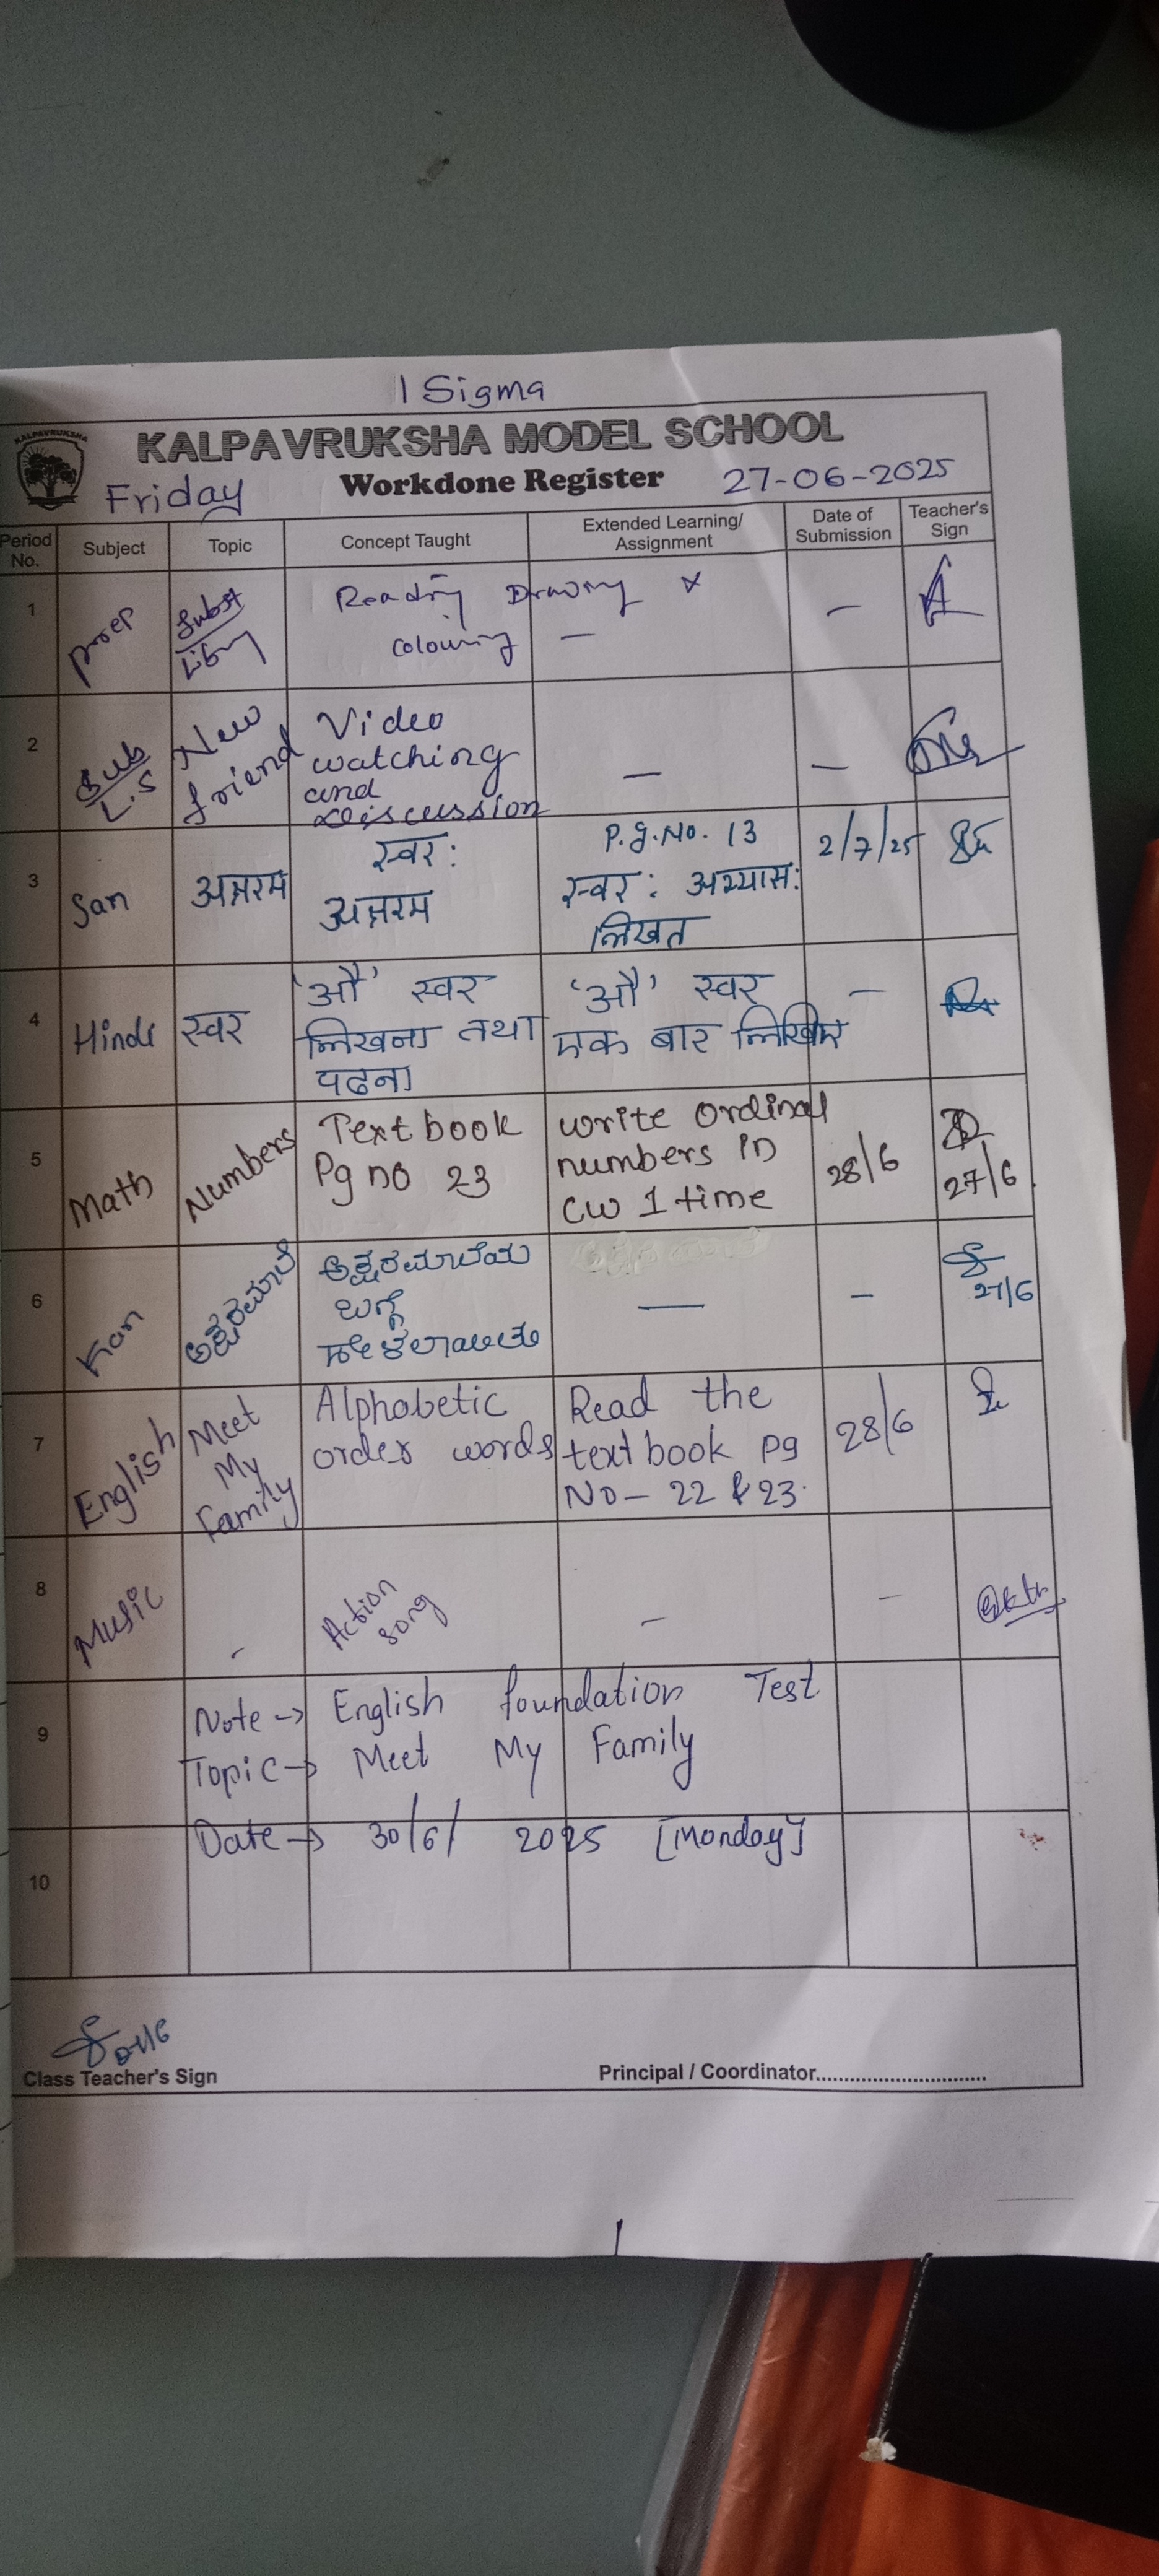 1 Sigma
KALPAVRUKSHA
KALPAVRUKSHA MODEL SCHOOL
Friday Workdone Register 27-06-2025
Period No. Subject Topic Concept Taught Extended Learning/ Assignment Date of Submission Teacher's Sign
1 prep Subst Reading Drawing
colouring — —
2 Sub/L.S New friend Video
watching
and
Discussion — —
3 San स्वर: P.g.No. 13 2/7/25
स्वर: अभ्यास:
लिखत
4 Hindi स्वर 'औ' स्वर 'औ' स्वर —
लिखना तथा एक बार लिखिए
पढना
5 Math Numbers Textbook write ordinal 28/6
Pg no 23 numbers in 27/6
cw 1 time
6 Kan ಅಕ್ಷರಮಾಲೆ ಅಕ್ಷರಮಾಲೆಯ — —
ಬಗ್ಗೆ 27/6
ಹೇಳಲಾಯಿತು
7 English Meet My Family Alphabetic Read the 28/6
order words textbook pg
NO - 22 & 23.
8 Music - Action song — —
9 Note → English foundation Test
Topic → Meet My Family
Date → 30/6/ 2025 [Monday]
10
Class Teacher's Sign Principal / Coordinator..............................